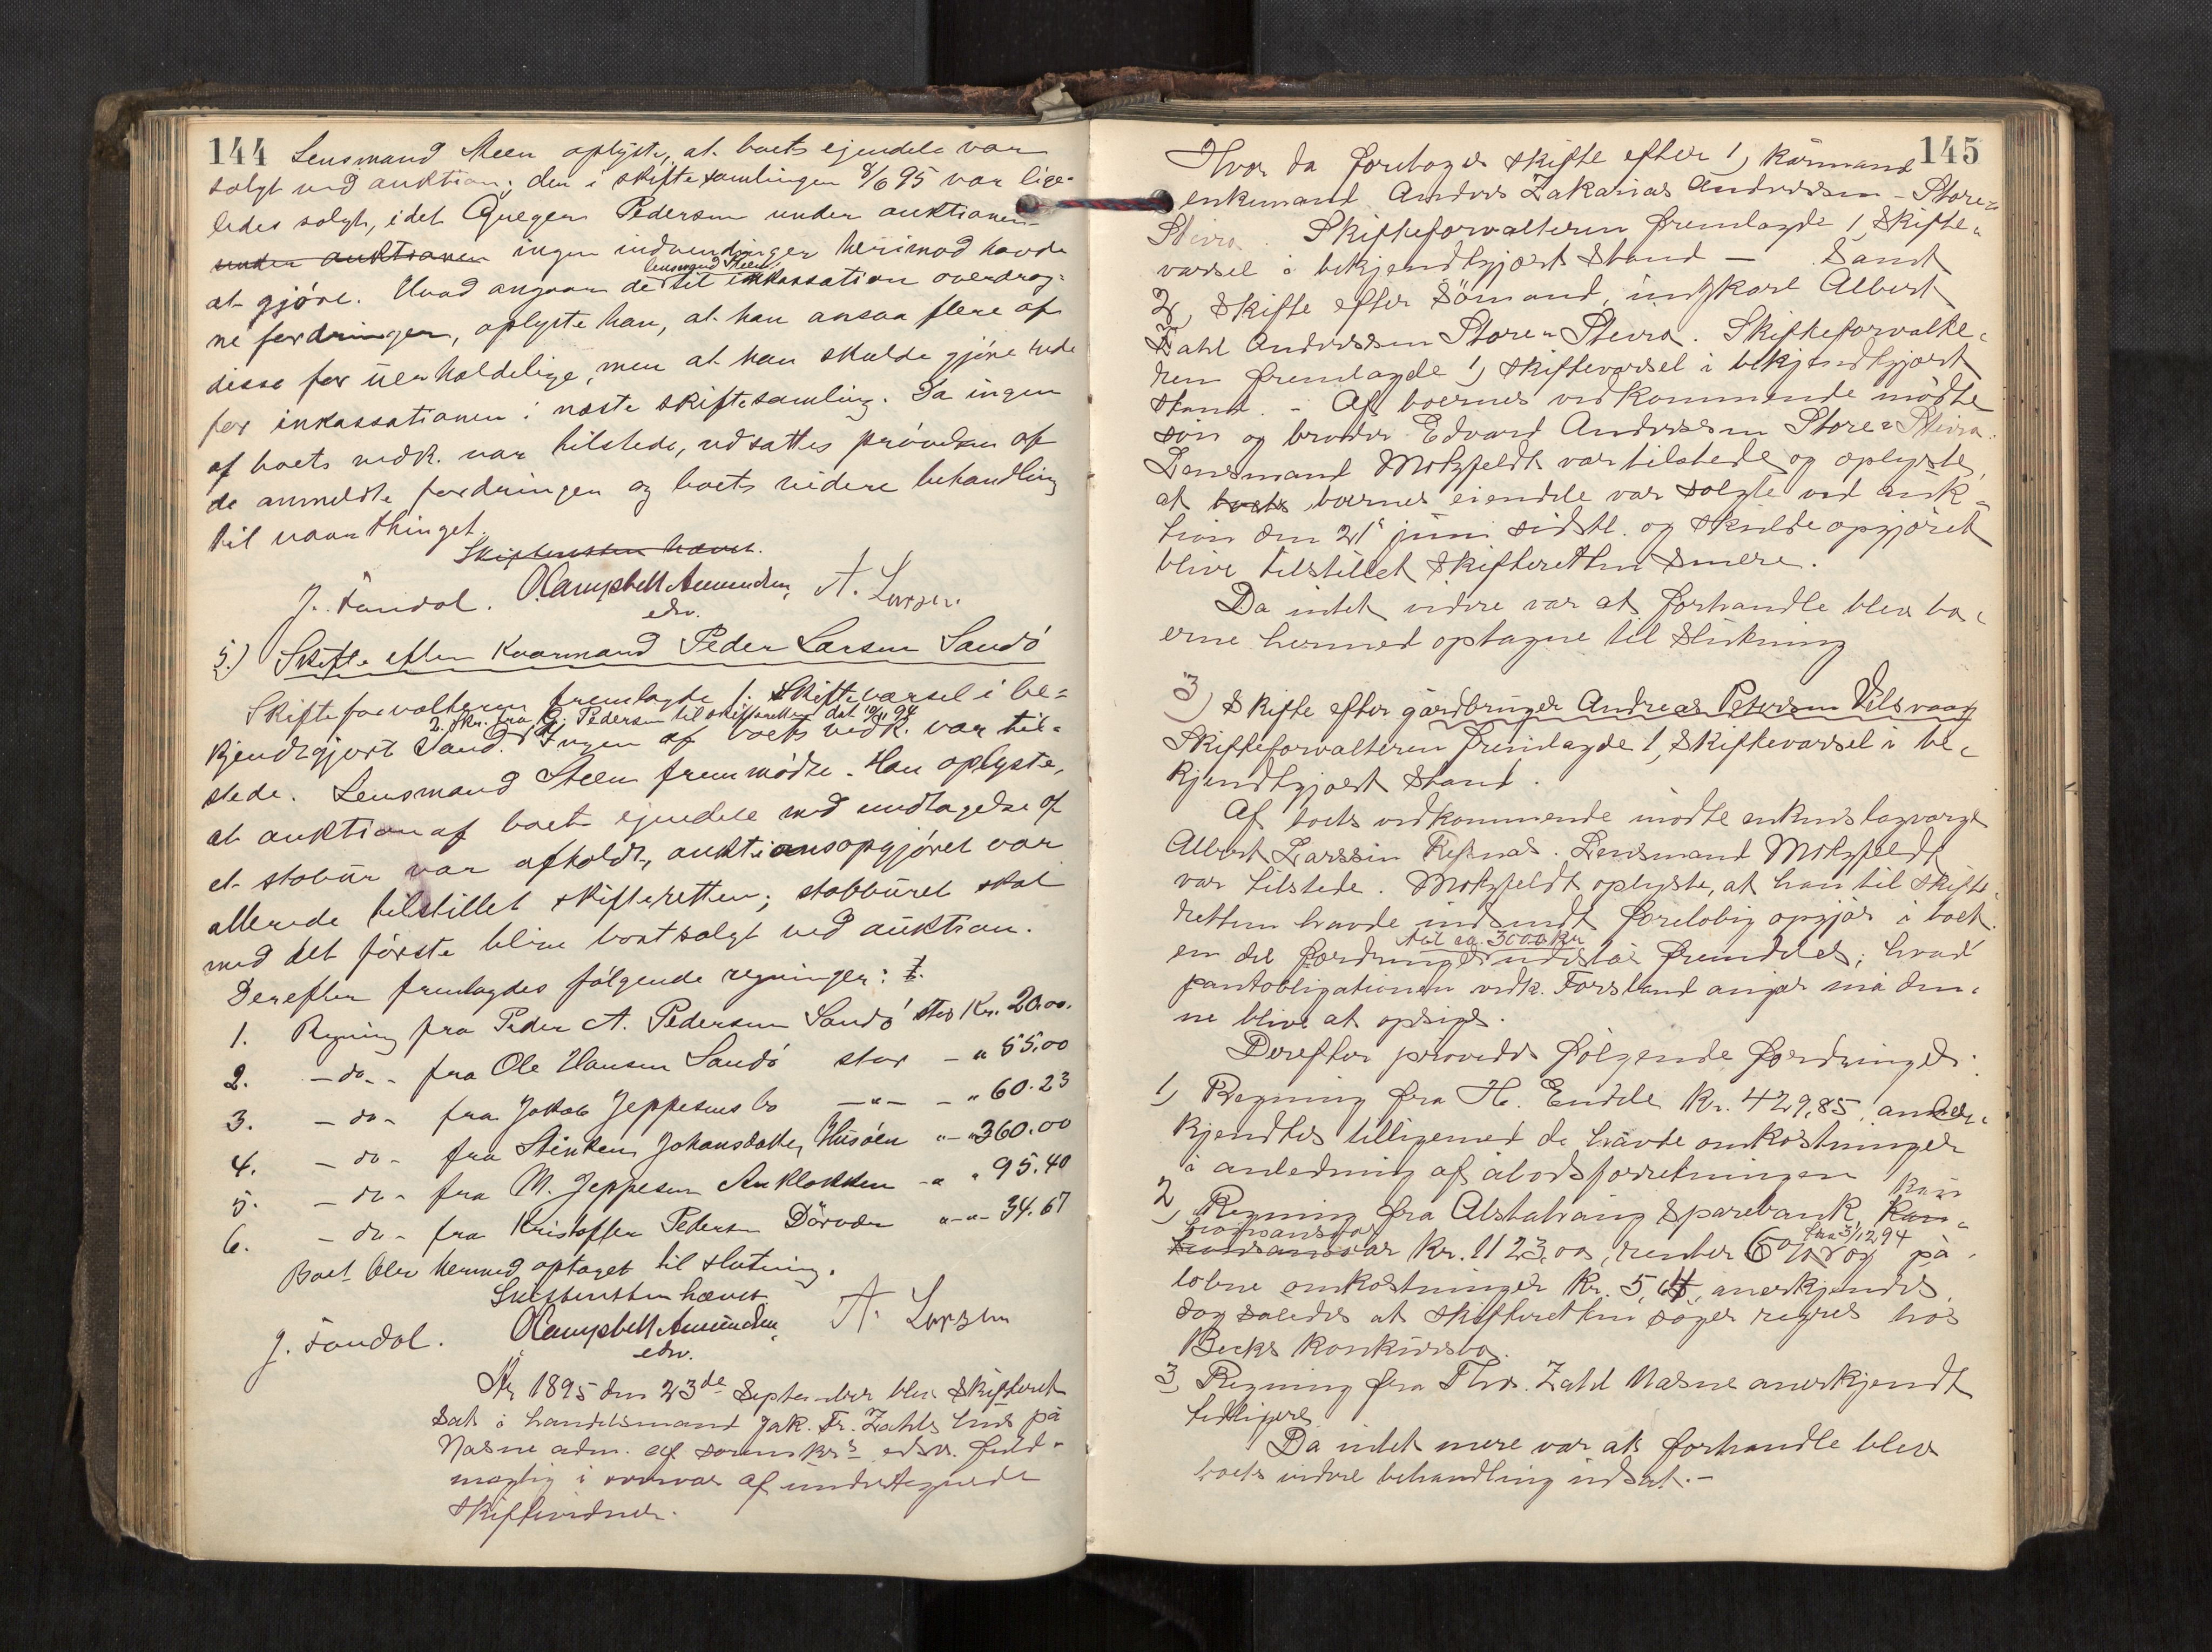 144 Lensmand Steen oplyste, at boets ejendele var
solgt ved auktion; den i skiftesamlingen 8/6 95 var lige-
ledes solgt, idet Pedersen under auktionen
under auktionen ingen indvendinger herimod havde
at gjøre. Hvad angaar de lensmand Steen til inkassation overdrag-
ne fordringer, oplyste han, at han ansaa flere af
disse for uerholdelige, men at han skulde gjøre rede
for inkassationen i næste skiftesamling. Da ingen
af boets vedk. var tilstede, udsattes prøvelsen af
de anmeldte fordringer og boets videre behandling
til vaarthinget.
Skifteretten hævet.
J. Fandal. O Campbell Amundsen, A. Larsen
edsv.
5.) Skifte efter Kaarmand Peder Larsen Sandö
Skifteforvalteren fremlagde 1. Skiftevarsel i be-
2. skr. fra G. Pedersen til skifteretten dat 10/11 94
kjendtgjort Stand. Ingen af boets vedk. var til-
stede. Lensmand Steen fremmødte. Han oplyste,
at auktion af boets ejendele med undtagelse af
et stabur var afholdt, auktionsopgjøret var
allerede tilstillet skifteretten; stabburet skal
med det første blive bortsolgt ved auktion.
Derefter fremlagdes følgende regninger:
1. Regning fra Peder A. Pedersen Sandö stor Kr. 20.00.
2. – do – fra Ole Hansen Sandö stor – „ 55.00
3. – do – fra Jakob Jeppesens bo – „ – – „ 60.23
4. – do – fra Stinken Johansdatter Husöen „ – „ 360.00
5. – do – fra M. Jeppesen Anklakken – „ „ 95.40
6. – do – fra Kristoffer Pedersen Dörvær „ – „ – 34.67
Boet blev hermed optaget til slutning.
Skifteretten hævet
J. Fandal. O Campbell Amundsen, A. Larsen
edsv.
År 1895 den 23de September blev skifteret
sat i handelsmand Jak. Fr. Zahls hus på
Nasne adm. af sorenskrs edsv. fuld-
mægtig i overvær af undertegnede
skiftevidner.
145
Hvor da foretoges skifte efter 1) kårmand
enkemand Anders Zakarias Andersen – Store-
Stivra. Skifteforvalteren fremlagde 1, Skifte-
varsel i bekjendtgjort Stand – Samt
2, Skifte efter Sömand, ungkarl Albert
Zahl Andersen Store-Stivra. Skifteforvalte-
ren fremlagde 1) skiftevarsel i bekjendtgjort
stand. – Af boernes vedkommende mødte
sön og broder Edvard Andersen Store-Stivra.
Lensmand Motzfeldt var tilstede og oplyste,
at boets boernes eiendele var solgte ved auk-
tion den 21' juni sidstl. og skulde opgjöret
blive tilstillet skifteretten senere.
Da intet videre var at forhandle blev bo-
erne hermed optagne til slutning
3) Skifte efter gårdbruger Andreas Petersen Vilsvaag
Skifteforvalteren fremlagde 1, Skiftevarsel i be-
kjendtgjort stand.
Af boets vedkommende mödte enkens lagværge
Albert Larssen Refsnæs. Lensmand Motzfeldt
var tilstede. Motzfeldt oplyste, at han til skifte-
retten havde indsendt foreløbig opgjör i boet.
stil ca. 3000 kr
en del fordringer udestår fremdeles; hvad
pantobligationen vedk. Forsland angår må den-
ne blive at opsige.
Derefter prövedes fölgende fordringer:
1) Regning fra H. Endele Kr. 429,85, aner-
kjendtes tilligemed de hævde omkostninger
i anledning af åbodsforretningen
2) Regning fra Alstahaug Sparebank, Kau-
tionsansvar Kr. 1123,00, renter 6% fra 3/12 94 og på-
løbne omkostninger Kr. 5,64, anerkjendes,
dog således at skifteretten søger regres hos
Becks konkursbo.
3, Regning fra Thor. Zahl Nasne anerkjendt
tidligere
Da intet mere var at forhandle blev
boets videre behandling udsat. –